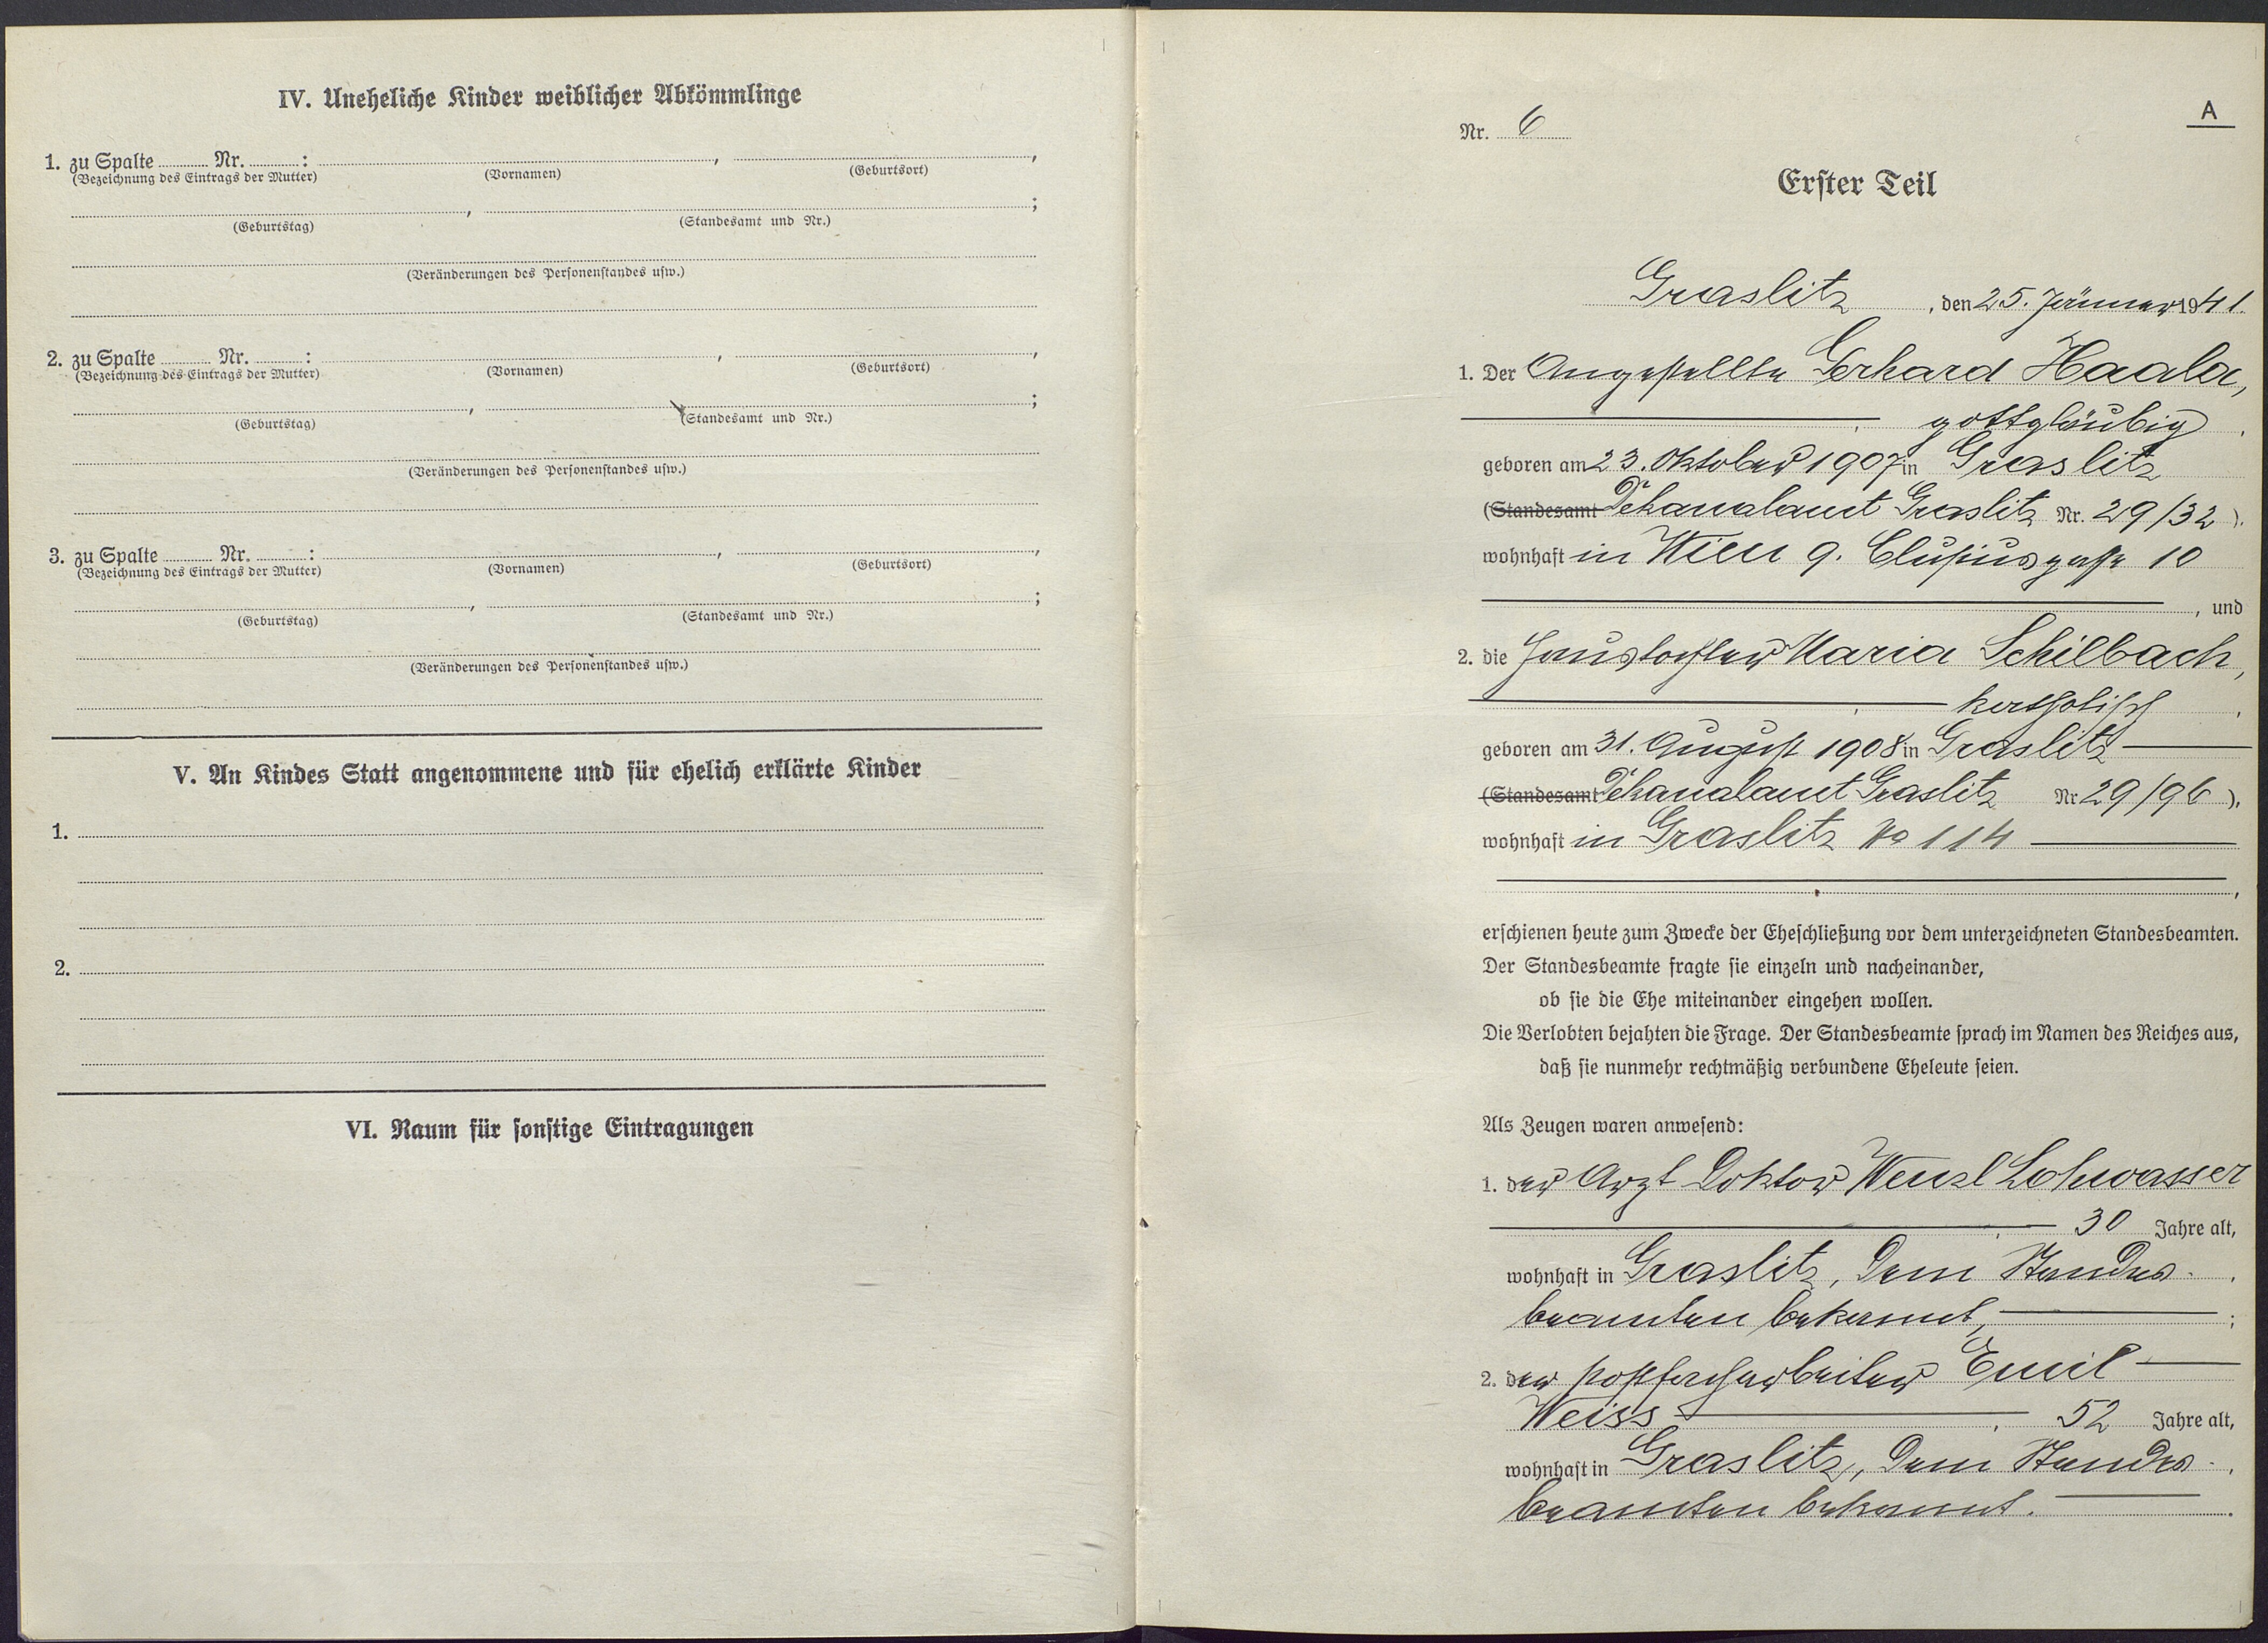 IV. Uneheliche Kinder weiblicher Abkömmlinge
1. zu Spalte ........ Nr. ........ : ........, ........,
(Bezeichnung des Eintrags der Mutter) (Vornamen) (Geburtsort)
........, ........;
(Geburtstag) (Standesamt und Nr.)
(Veränderungen des Personenstandes usw.)
2. zu Spalte ........ Nr. ........ : ........, ........,
(Bezeichnung des Eintrags der Mutter) (Vornamen) (Geburtsort)
........, ........;
(Geburtstag) (Standesamt und Nr.)
(Veränderungen des Personenstandes usw.)
3. zu Spalte ........ Nr. ........ : ........, ........,
(Bezeichnung des Eintrags der Mutter) (Vornamen) (Geburtsort)
........, ........;
(Geburtstag) (Standesamt und Nr.)
(Veränderungen des Personenstandes usw.)
V. An Kindes Statt angenommene und für ehelich erklärte Kinder
1.
2.
VI. Raum für sonstige Eintragungen
A
Nr. 6
Erster Teil
Graslitz, den 25. Jänner 1941.
1. Der Angestellte Gerhard Haala,
gottgläubig.
geboren am 23. Oktober 1907 in Graslitz
(Standesamt Dekanalamt Graslitz Nr. 29/32).
wohnhaft in Wien 9. Clusiusgasse 10
, und
2. die Haustochter Maria Schilbach,
katholisch.
geboren am 31. August 1908 in Graslitz
(Standesamt Dekanalamt Graslitz Nr. 29/96).
wohnhaft in Graslitz No 114
,
erschienen heute zum Zwecke der Eheschließung vor dem unterzeichneten Standesbeamten.
Der Standesbeamte fragte sie einzeln und nacheinander,
ob sie die Ehe miteinander eingehen wollen.
Die Verlobten bejahten die Frage. Der Standesbeamte sprach im Namen des Reiches aus,
daß sie nunmehr rechtmäßig verbundene Eheleute seien.
Als Zeugen waren anwesend:
1. der Arzt Doktor Wenzl Lohwasser
30 Jahre alt,
wohnhaft in Graslitz, dem Standes-
beamten bekannt,;
2. der Postfacharbeiter Emil
Weiss, 52 Jahre alt,
wohnhaft in Graslitz, dem Standes-
beamten bekannt.